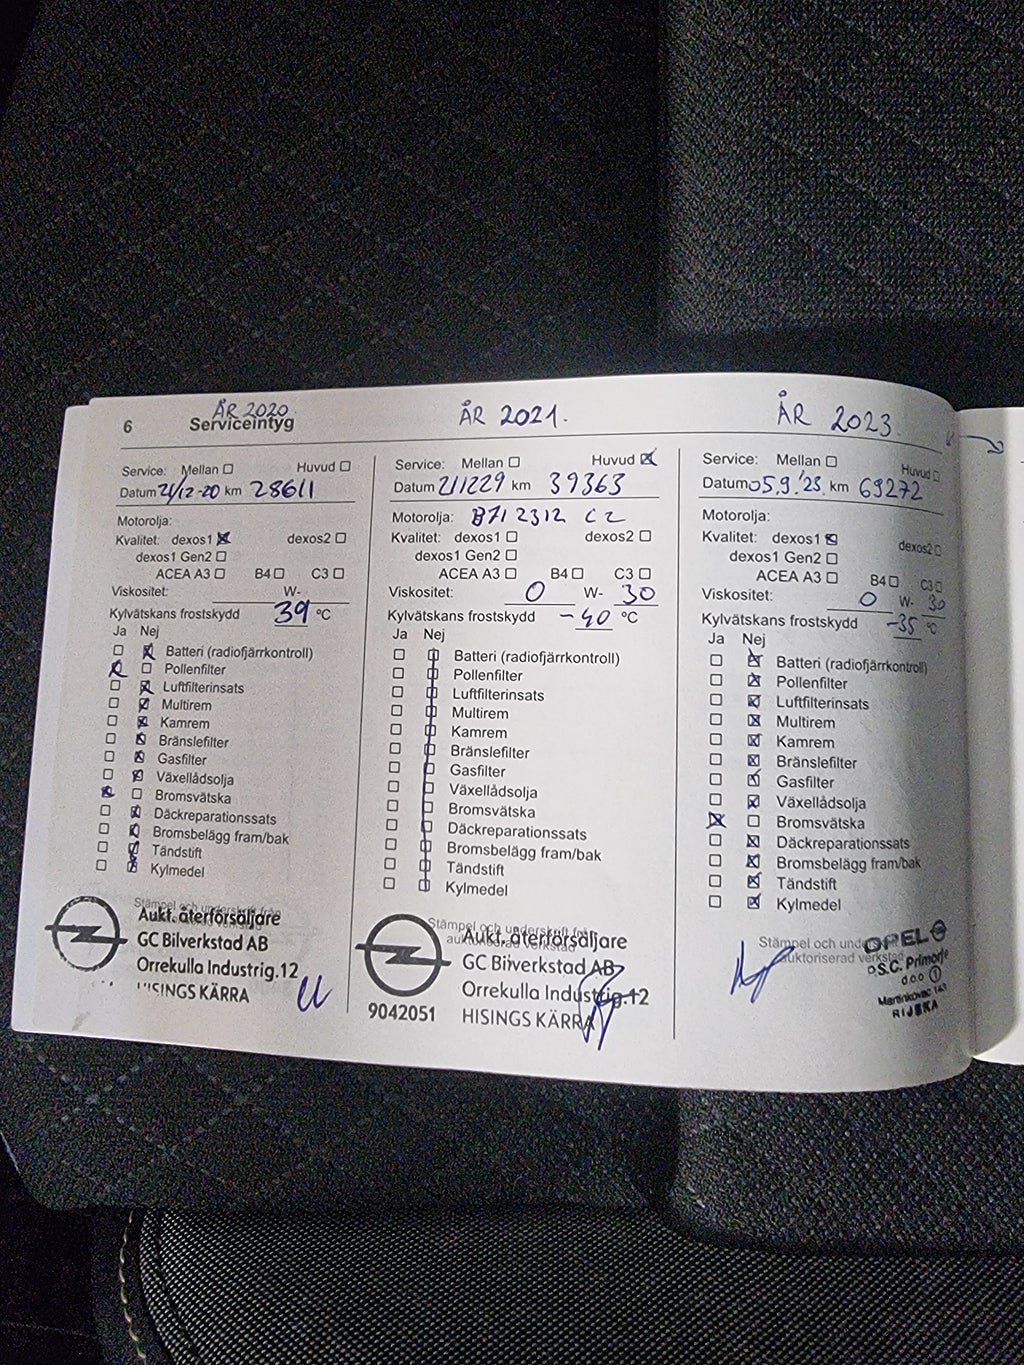 6
ÅR 2020
Serviceintyg
Service: Mellan Huvud
Datum 21/12-20 km 28611
Motorolja:
Kvalitet: dexos1 dexos2
dexos1 Gen2
ACEA A3 B4 C3
Viskositet: W-
Kylvätskans frostskydd 39 °C
Ja Nej
Batteri (radiofjärrkontroll)
Pollenfilter
Luftfilterinsats
Multirem
Kamrem
Bränslefilter
Gasfilter
Växellådsolja
Bromsvätska
Däckreparationssats
Bromsbelägg fram/bak
Tändstift
Kylmedel
Stämpel och underskrift från
Aukt. återförsäljare
GC Bilverkstad AB
Orrekulla Industrig.12
HISINGS KÄRRA
ÅR 2021.
Service: Mellan Huvud
Datum 211229 km 39363
Motorolja: B712312 C2
Kvalitet: dexos1 dexos2
dexos1 Gen2
ACEA A3 B4 C3
Viskositet: 0 W- 30
Kylvätskans frostskydd -40 °C
Ja Nej
Batteri (radiofjärrkontroll)
Pollenfilter
Luftfilterinsats
Multirem
Kamrem
Bränslefilter
Gasfilter
Växellådsolja
Bromsvätska
Däckreparationssats
Bromsbelägg fram/bak
Tändstift
Kylmedel
Stämpel och underskrift från
auktoriserad verkstad
Aukt. återförsäljare
GC Bilverkstad AB
Orrekulla Industrig.12
9042051 HISINGS KÄRRA
ÅR 2023.
Service: Mellan Huvud
Datum 05.9.'23. km 69272
Motorolja:
Kvalitet: dexos1 dexos2
dexos1 Gen2
ACEA A3 B4 C3
Viskositet: 0 W- 30
Kylvätskans frostskydd -35 °C
Ja Nej
Batteri (radiofjärrkontroll)
Pollenfilter
Luftfilterinsats
Multirem
Kamrem
Bränslefilter
Gasfilter
Växellådsolja
Bromsvätska
Däckreparationssats
Bromsbelägg fram/bak
Tändstift
Kylmedel
Stämpel och underskrift
auktoriserad verkstad
OPEL
S.C. Primorje
doo 1
Martinkovac 143
RIJEKA